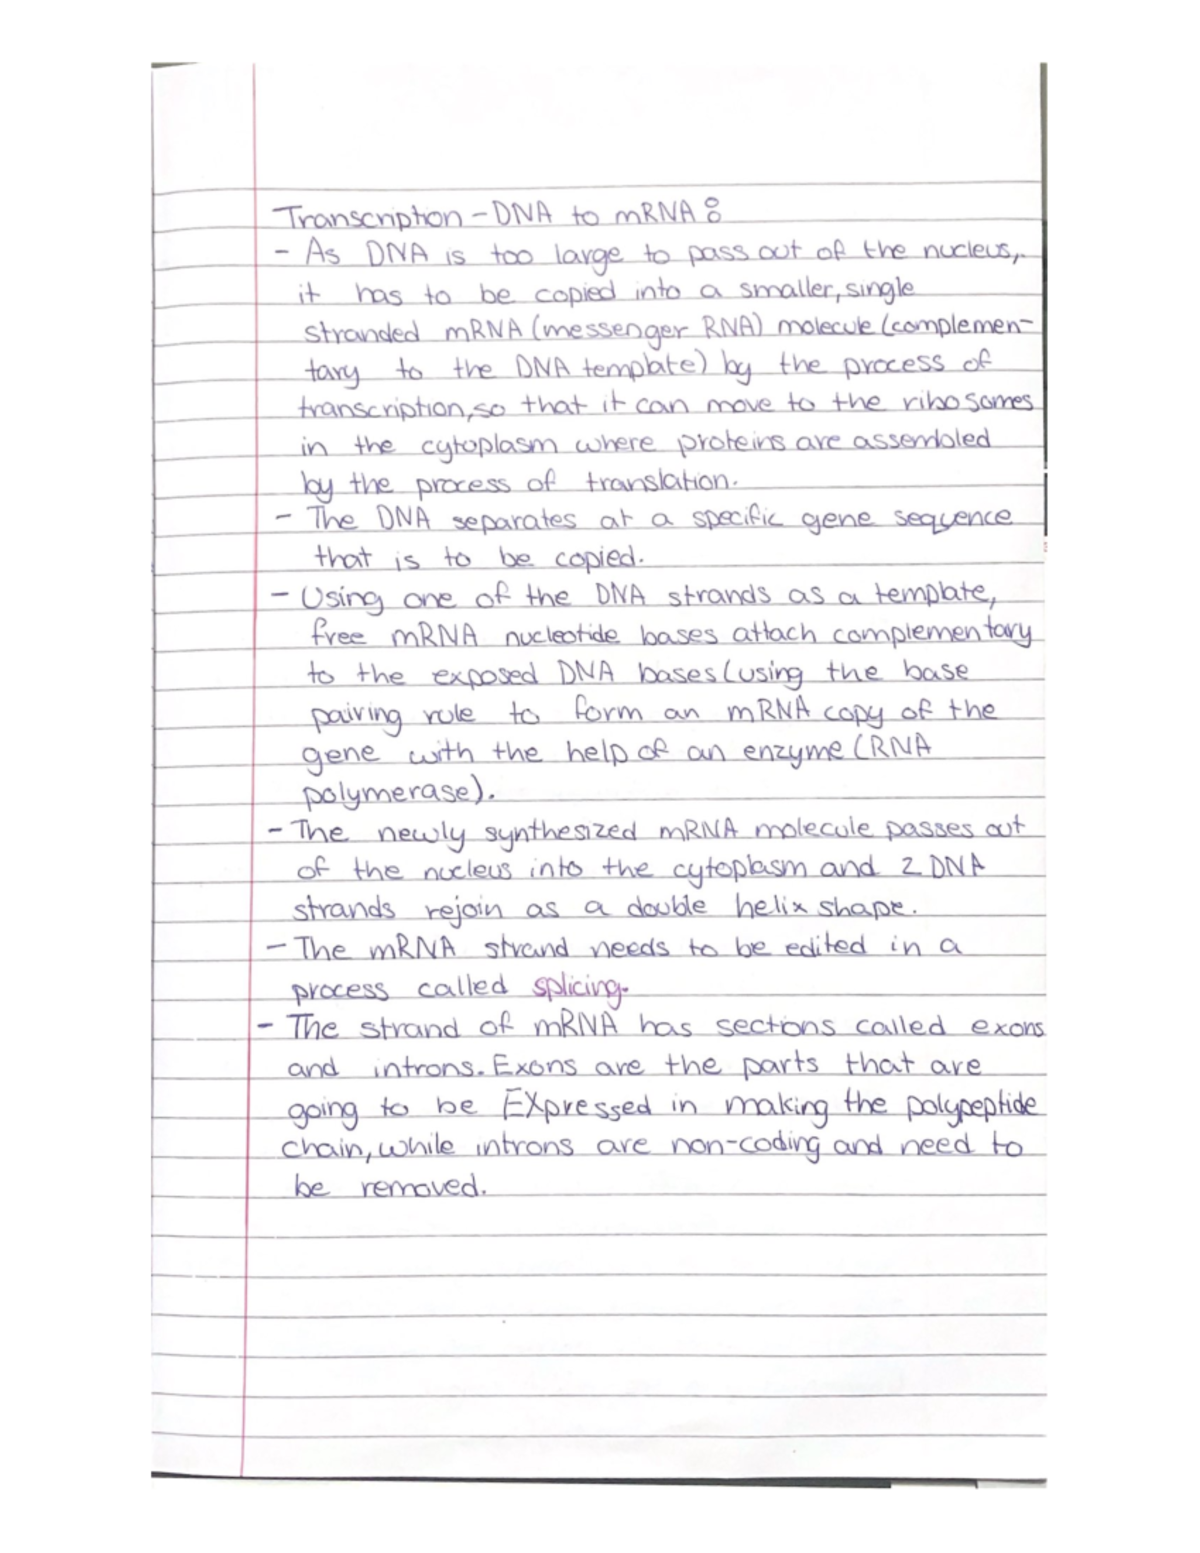 Transcription - DNA to mRNA:
- As DNA is too large to pass out of the nucleus,
it has to be copied into a smaller, single
stranded mRNA (messenger RNA) molecule (complemen-
tary to the DNA template) by the process of
transcription, so that it can move to the ribosomes
in the cytoplasm where proteins are assembled
by the process of translation.
- The DNA separates at a specific gene sequence
that is to be copied.
- Using one of the DNA strands as a template,
free mRNA nucleotide bases attach complementary
to the exposed DNA bases (using the base
pairing rule to form an mRNA copy of the
gene with the help of an enzyme (RNA
polymerase).
- The newly synthesized mRNA molecule passes out
of the nucleus into the cytoplasm and 2 DNA
strands rejoin as a double helix shape.
- The mRNA strand needs to be edited in a
process called splicing.
- The strand of mRNA has sections called exons
and introns. Exons are the parts that are
going to be EXpressed in making the polypeptide
chain, while introns are non-coding and need to
be removed.